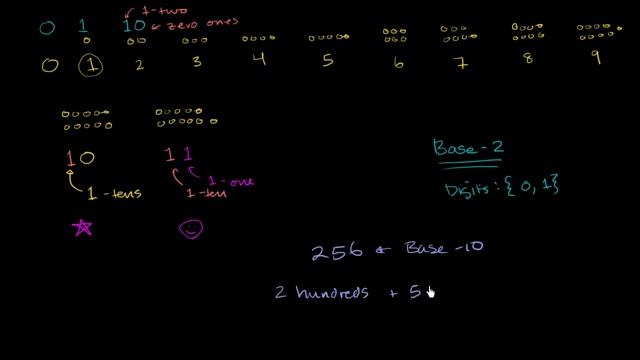 1-two
0 1 10 zero ones
0 1 2 3 4 5 6 7 8 9
10 11
1-one
1-tens 1-ten
Base-2
Digits: {0, 1}
256 ← Base-10
2 hundreds + 5